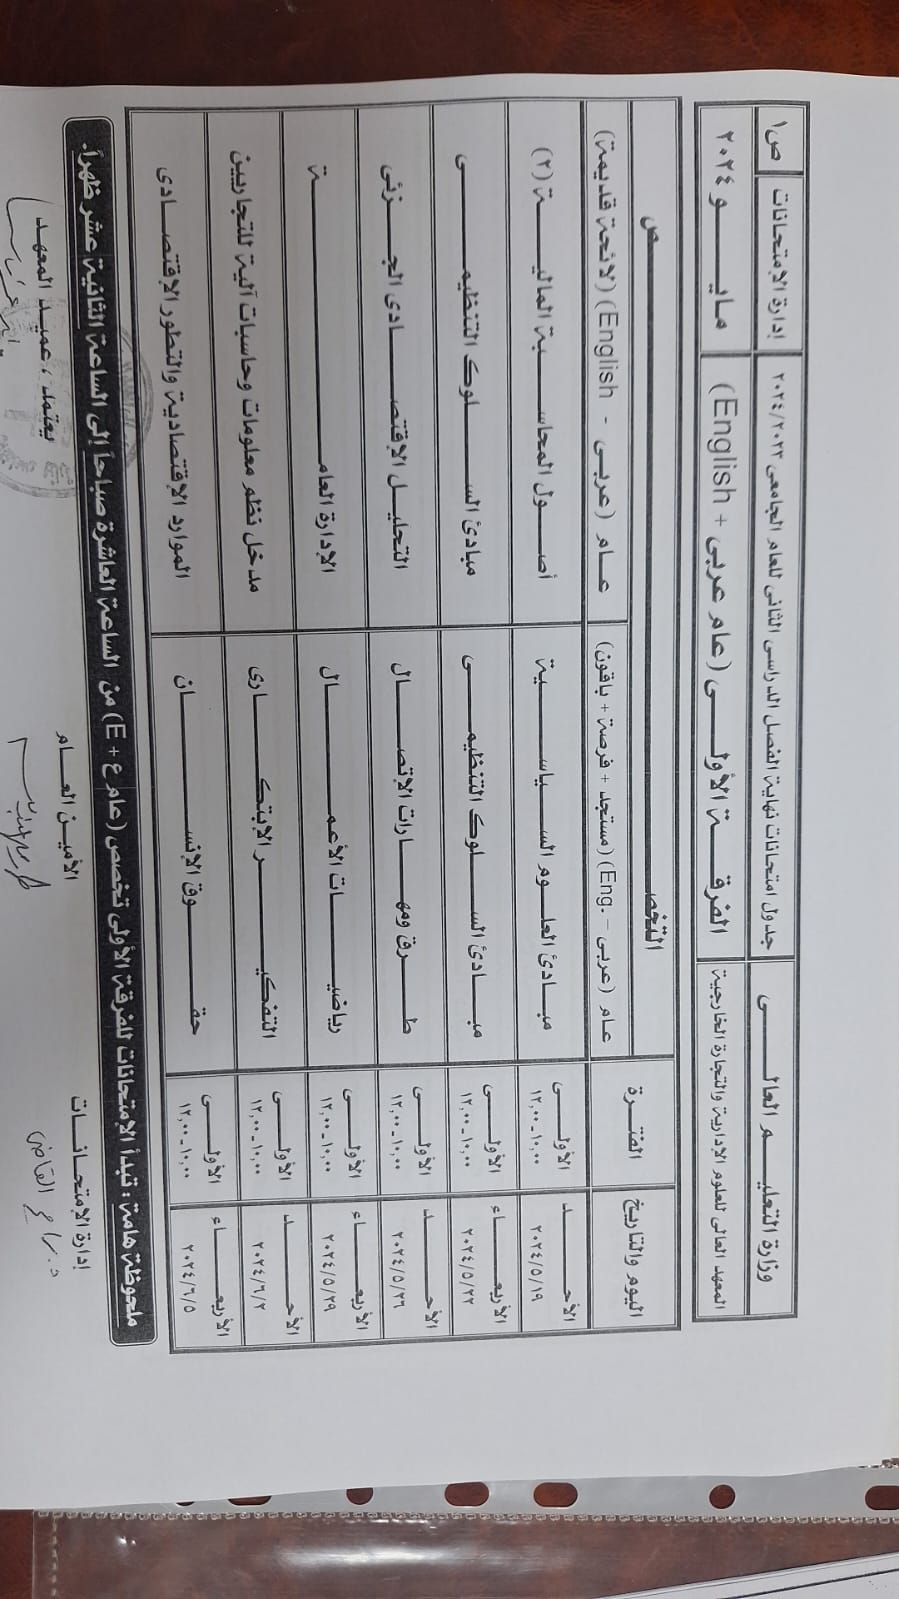 وزارة التعليم العالى
جدول امتحانات نهاية الفصل الدراسى الثانى للعام الجامعى ٢٠٢٤/٢٠٢٣
إدارة الإمتحانات
ص١
المعهد العالى للعلوم الإدارية والتجارة الخارجية
الفرقة الأولى (عام عربى + English)
مايو ٢٠٢٤
اليوم والتاريخ
الفترة
التخصص
عام (عربى - Eng.) (مستجد + فرصة + باقون)
عام (عربى - English) (لائحة قديمة)
الأحد
٢٠٢٤/٥/١٩
الأولى
١٠,٠٠-١٢,٠٠
مبادئ العلوم السياسية
أصول المحاسبة المالية (٢)
الأربعاء
٢٠٢٤/٥/٢٢
الأولى
١٠,٠٠-١٢,٠٠
مبادئ السلوك التنظيمى
مبادئ السلوك التنظيمى
الأحد
٢٠٢٤/٥/٢٦
الأولى
١٠,٠٠-١٢,٠٠
طرق ومهارات الإتصال
التحليل الإقتصادى الجزئى
الأربعاء
٢٠٢٤/٥/٢٩
الأولى
١٠,٠٠-١٢,٠٠
رياضيات الأعمال
الإدارة العامة
الأحد
٢٠٢٤/٦/٢
الأولى
١٠,٠٠-١٢,٠٠
التفكير الإبتكارى
مدخل نظم معلومات وحاسبات آلية للتجاريين
الأربعاء
٢٠٢٤/٦/٥
الأولى
١٠,٠٠-١٢,٠٠
حقوق الإنسان
الموارد الإقتصادية والتطور الإقتصادى
ملحوظة هامة : تبدأ الإمتحانات للفرقة الأولى تخصص (عام ع + E) من الساعة العاشرة صباحاً إلى الساعة الثانية عشر ظهراً.
إدارة الإمتحانات
الأمين العام
يعتمد ، عميد المعهد